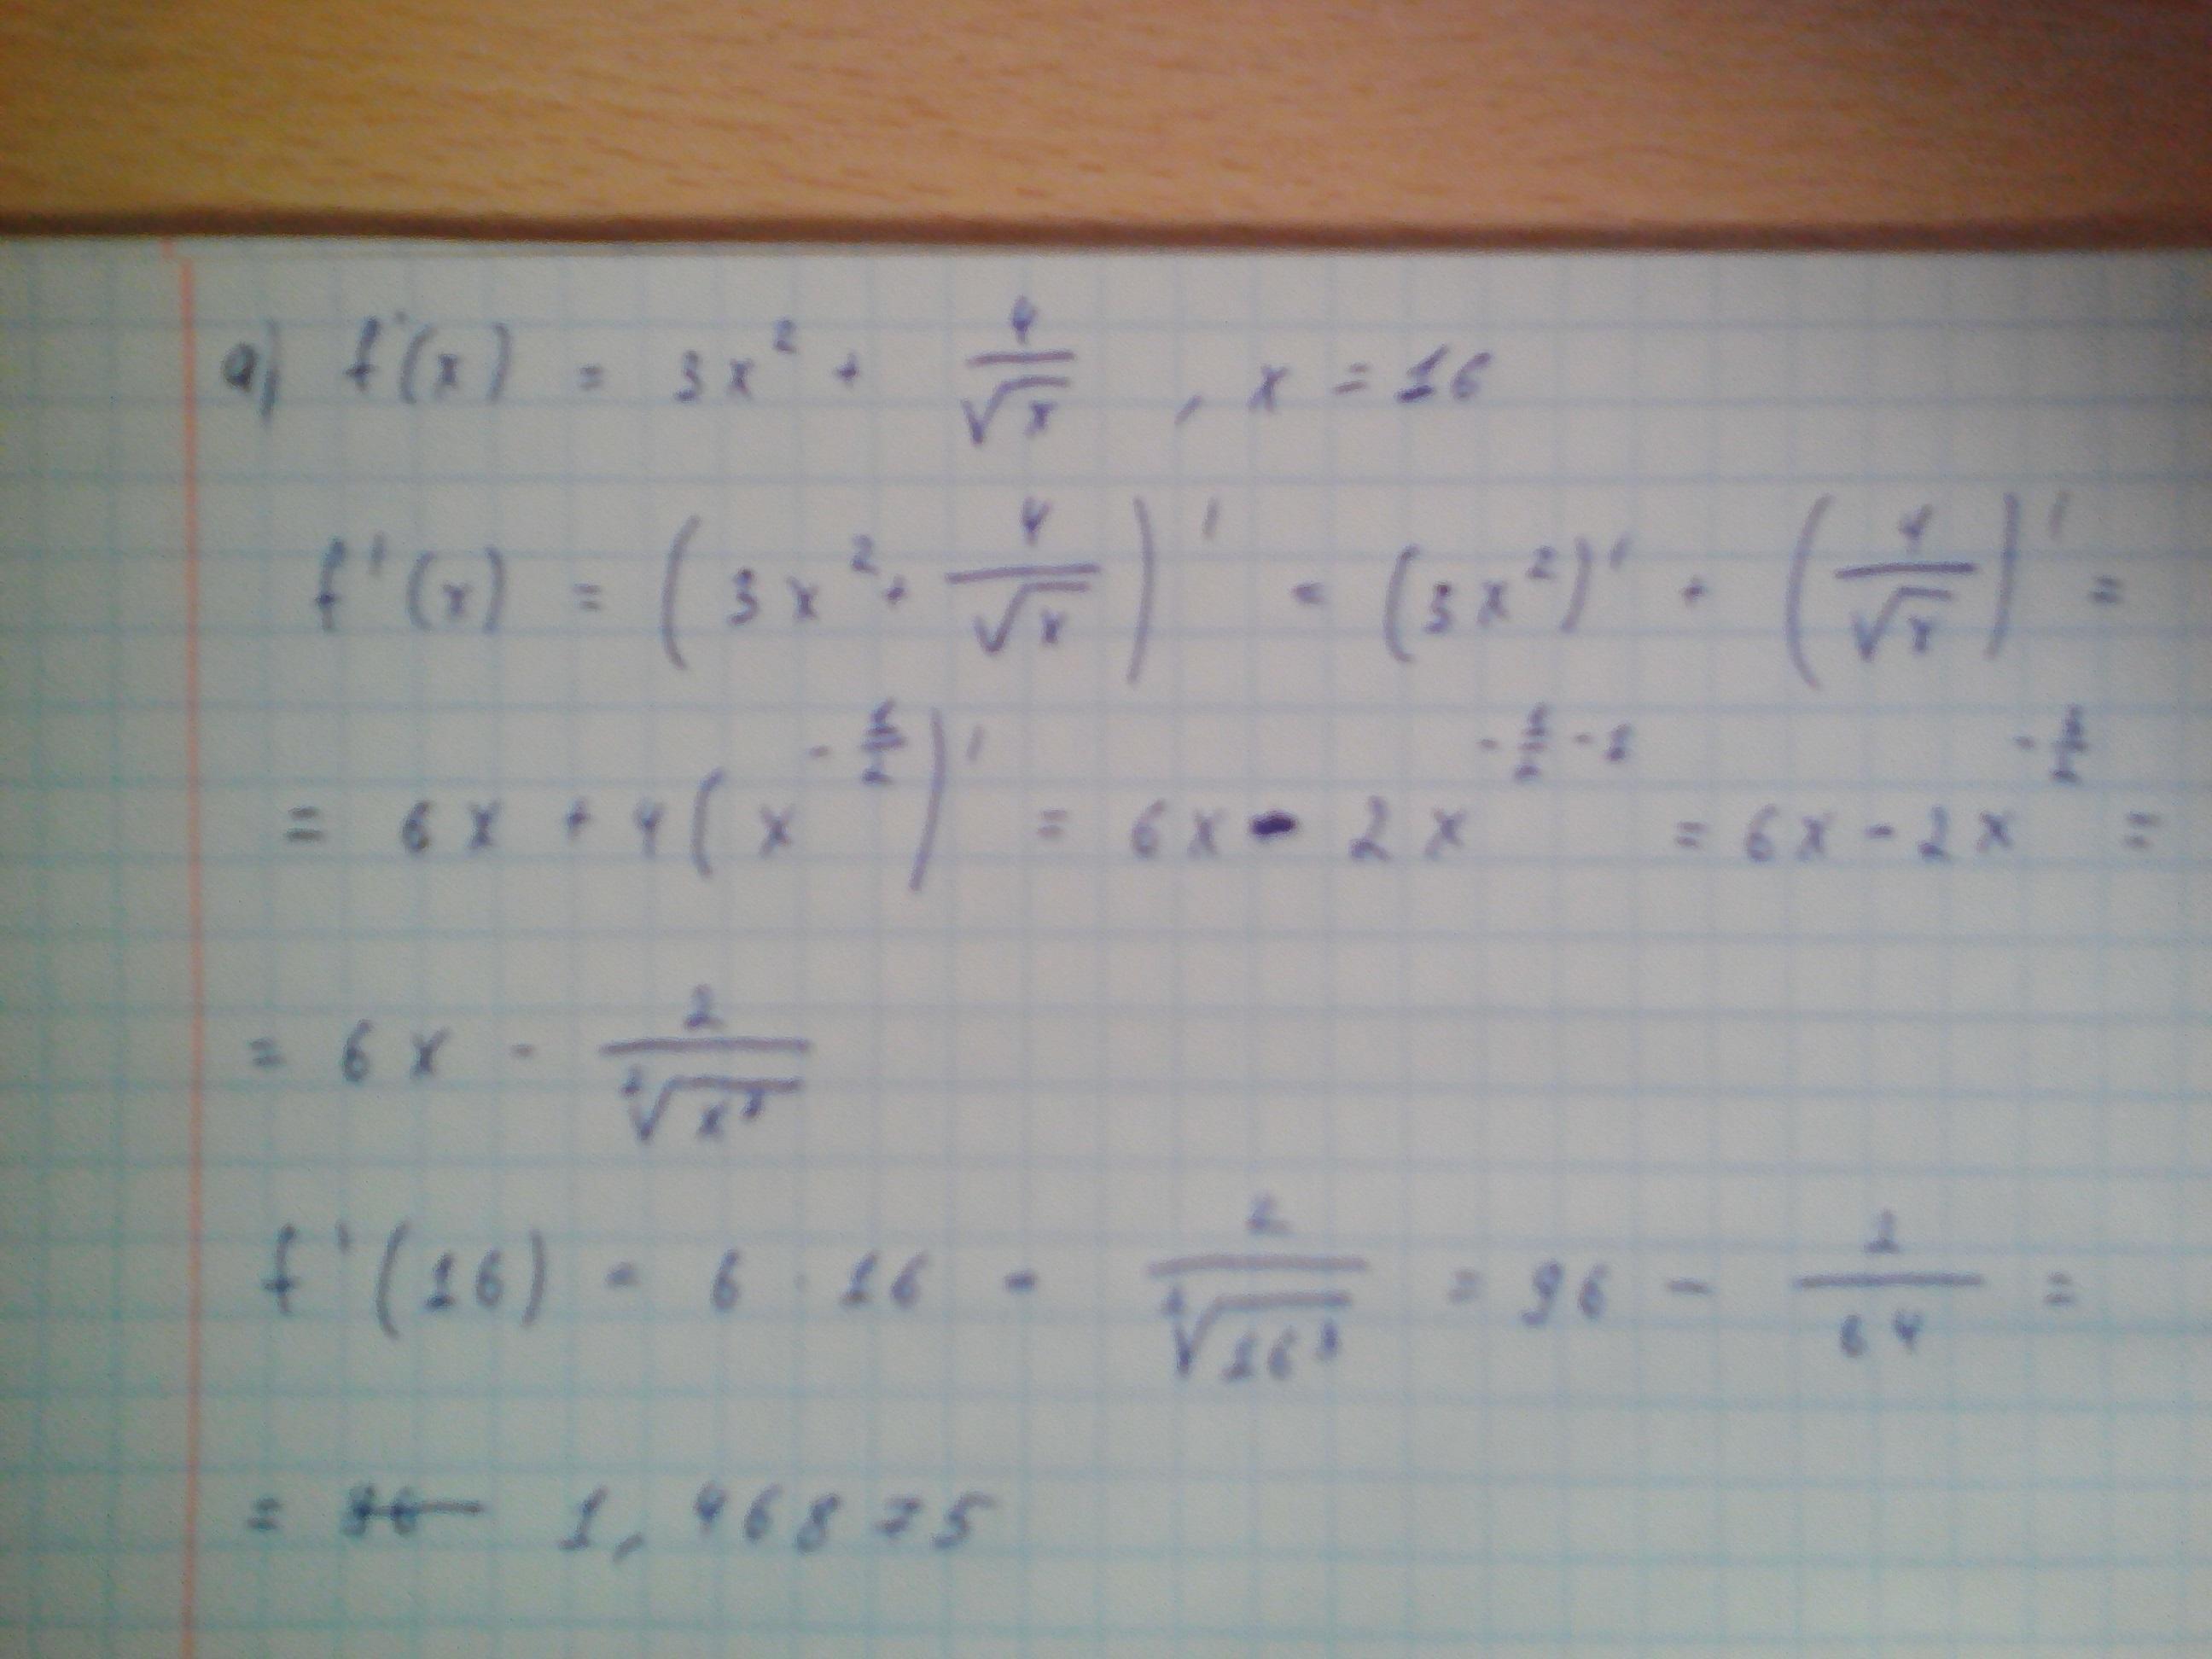 а) f(x) = 3x² + 4/√x , x = 16
f'(x) = (3x² + 4/√x)' = (3x²)' + (4/√x)' =
= 6x + 4(x^(-1/2))' = 6x - 2x^(-1/2 - 1) = 6x - 2x^(-3/2) =
= 6x - 2/²√x³
f'(16) = 6 · 16 - 2/²√16³ = 96 - 2/64 =
= 1,46875